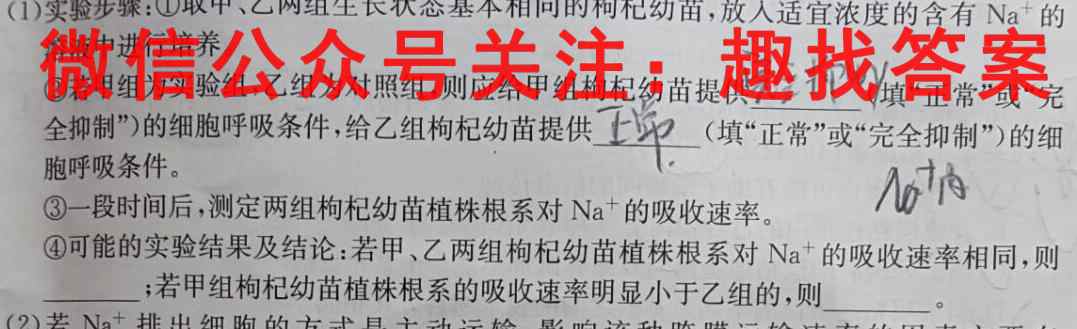 (1)实验步骤:①取甲、乙两组生长状态基本相同的枸杞幼苗,放入适宜浓度的含有 Na⁺ 的
中进行培养
微信公众号关注:趣找答案
甲组为实验组,乙组为对照组,则应给甲组枸杞幼苗提供 (填“正常”或“完
全抑制”)的细胞呼吸条件,给乙组枸杞幼苗提供 正常 (填“正常”或“完全抑制”)的细
胞呼吸条件。
Na⁺内
③一段时间后,测定两组枸杞幼苗植株根系对 Na⁺ 的吸收速率。
④可能的实验结果及结论:若甲、乙两组枸杞幼苗植株根系对 Na⁺ 的吸收速率相同,则
;若甲组枸杞幼苗植株根系的吸收速率明显小于乙组的,则 。
(2)若 Na⁺ 排出细胞的方式是主动运输